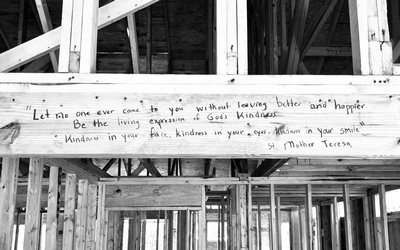 "Let no one ever come to you without leaving better and happier.
Be the living expression of Gods Kindness
"Kindness in your face, kindness in your eyes, kindness in your smile"
St. Mother Teresa